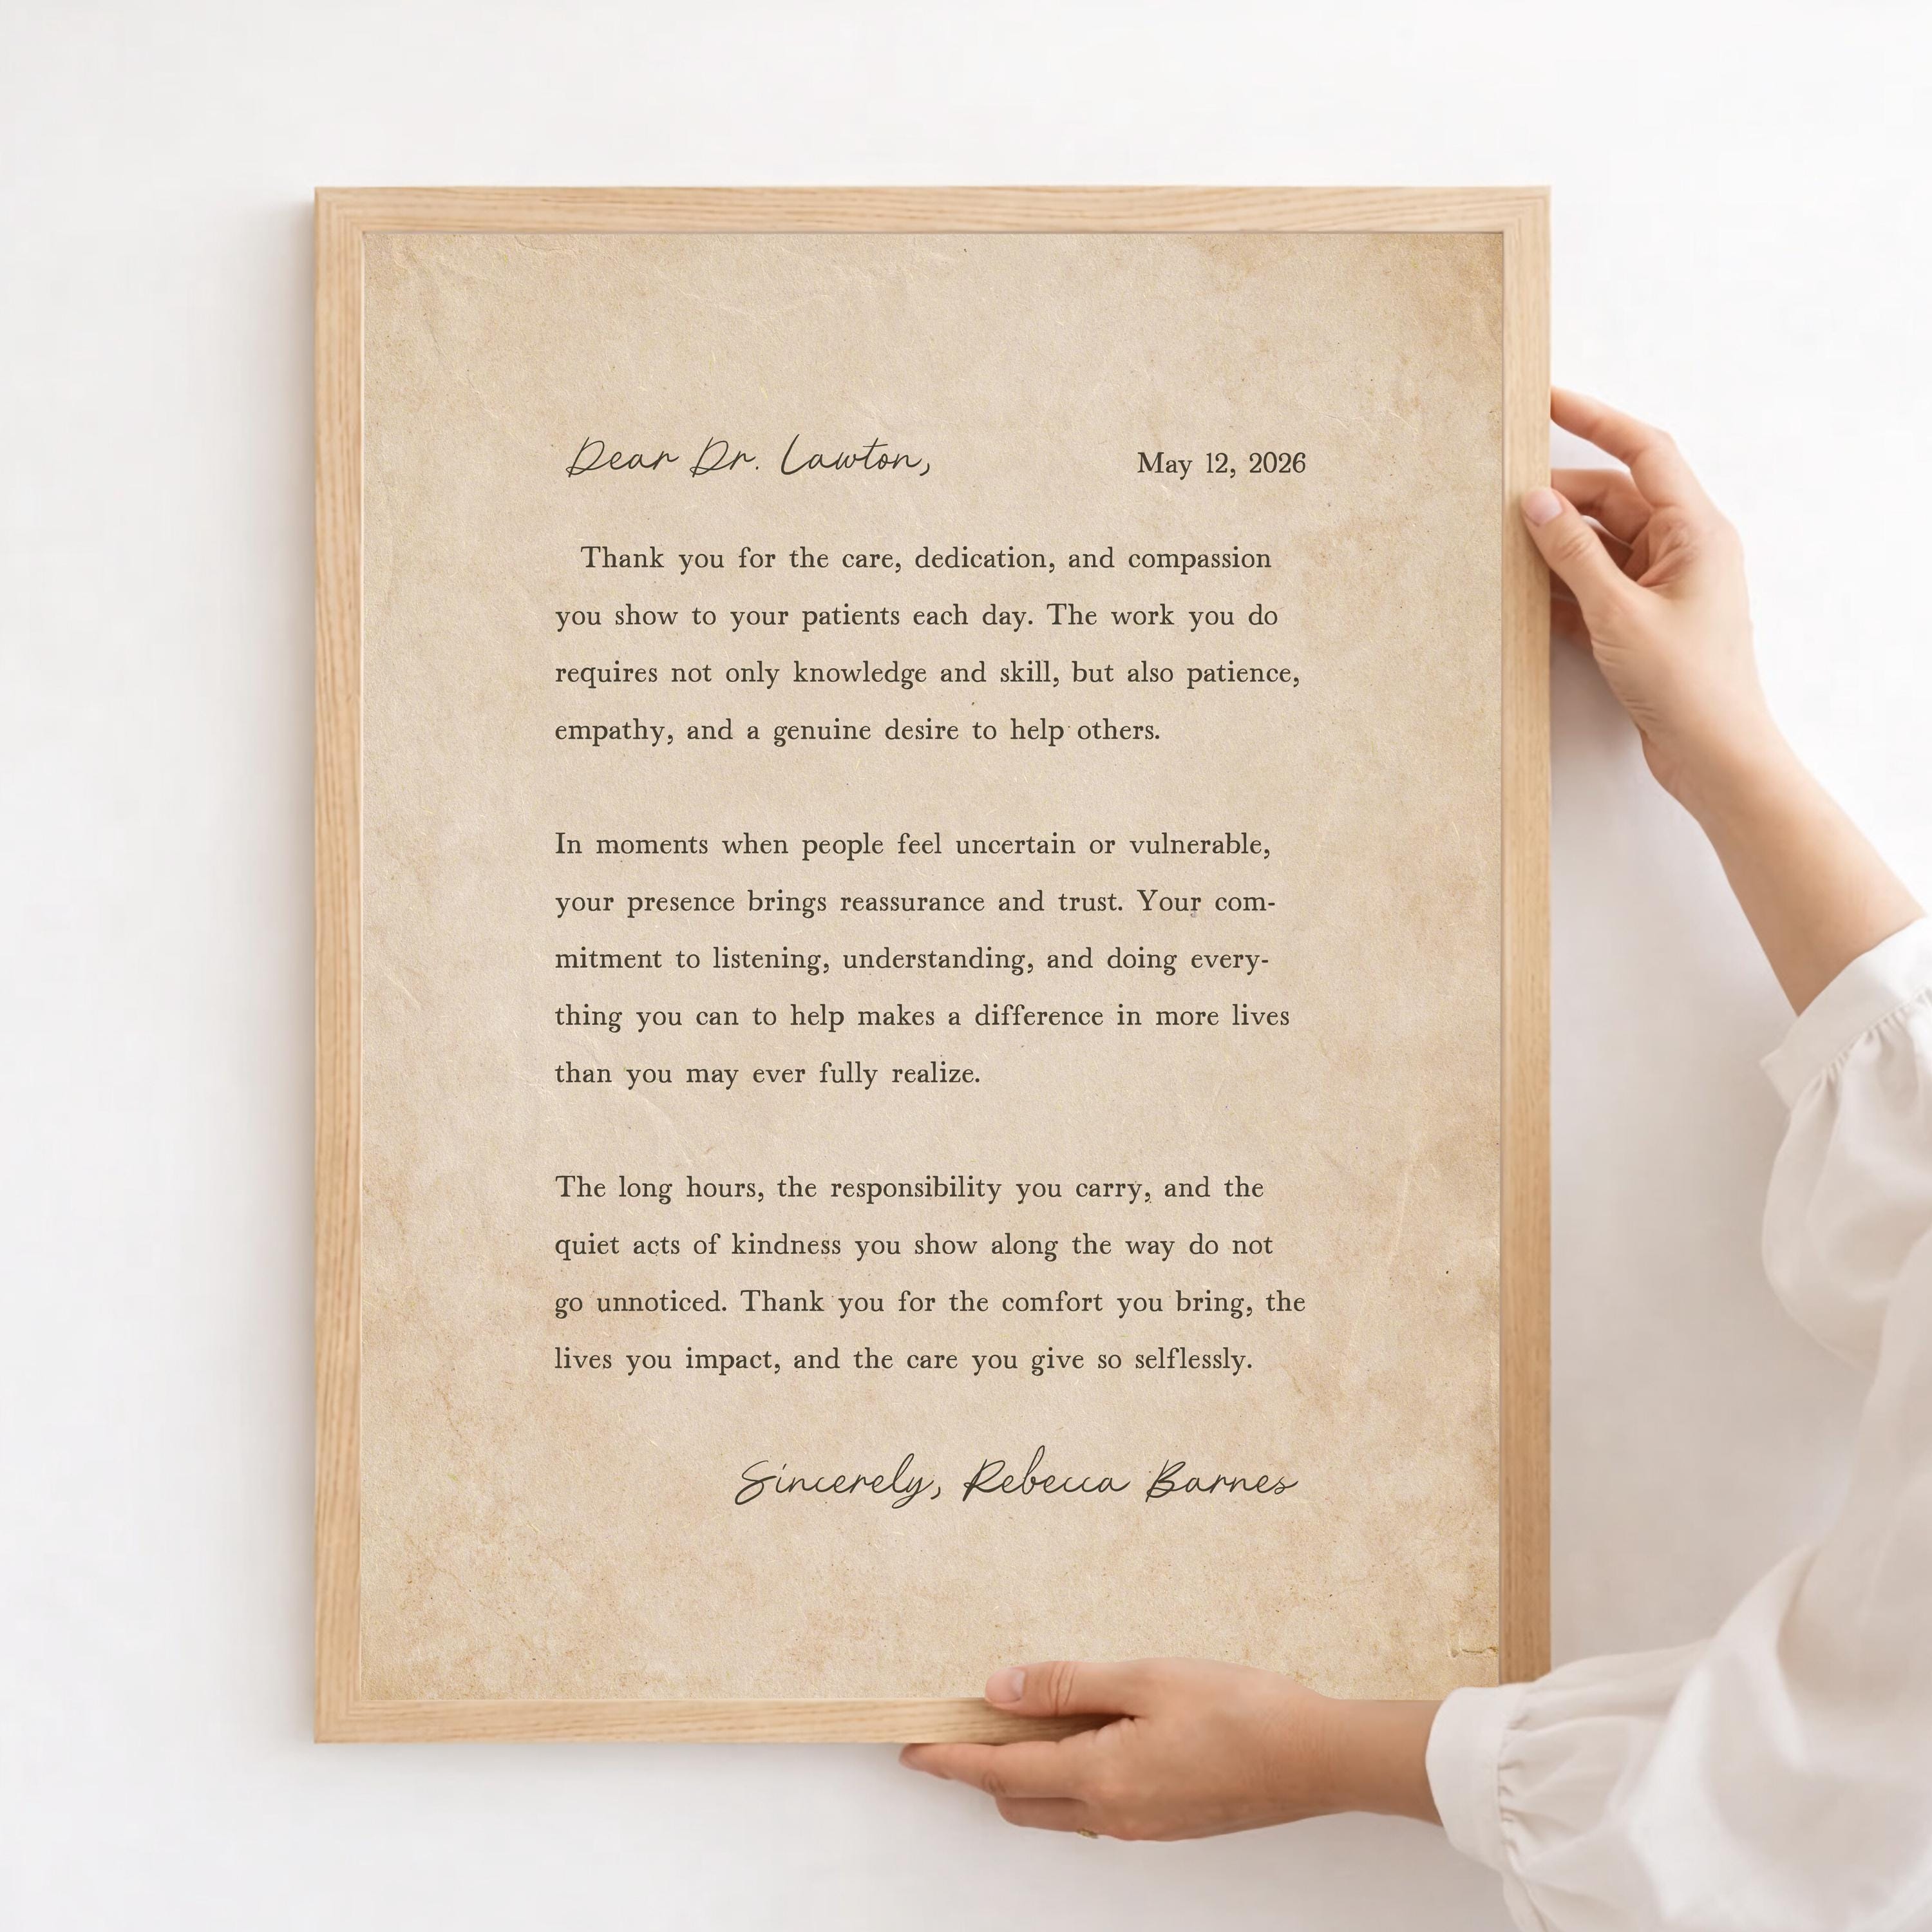 Dear Dr. Lawton,
May 12, 2026
Thank you for the care, dedication, and compassion
you show to your patients each day. The work you do
requires not only knowledge and skill, but also patience,
empathy, and a genuine desire to help others.
In moments when people feel uncertain or vulnerable,
your presence brings reassurance and trust. Your com-
mitment to listening, understanding, and doing every-
thing you can to help makes a difference in more lives
than you may ever fully realize.
The long hours, the responsibility you carry, and the
quiet acts of kindness you show along the way do not
go unnoticed. Thank you for the comfort you bring, the
lives you impact, and the care you give so selflessly.
Sincerely, Rebecca Barnes